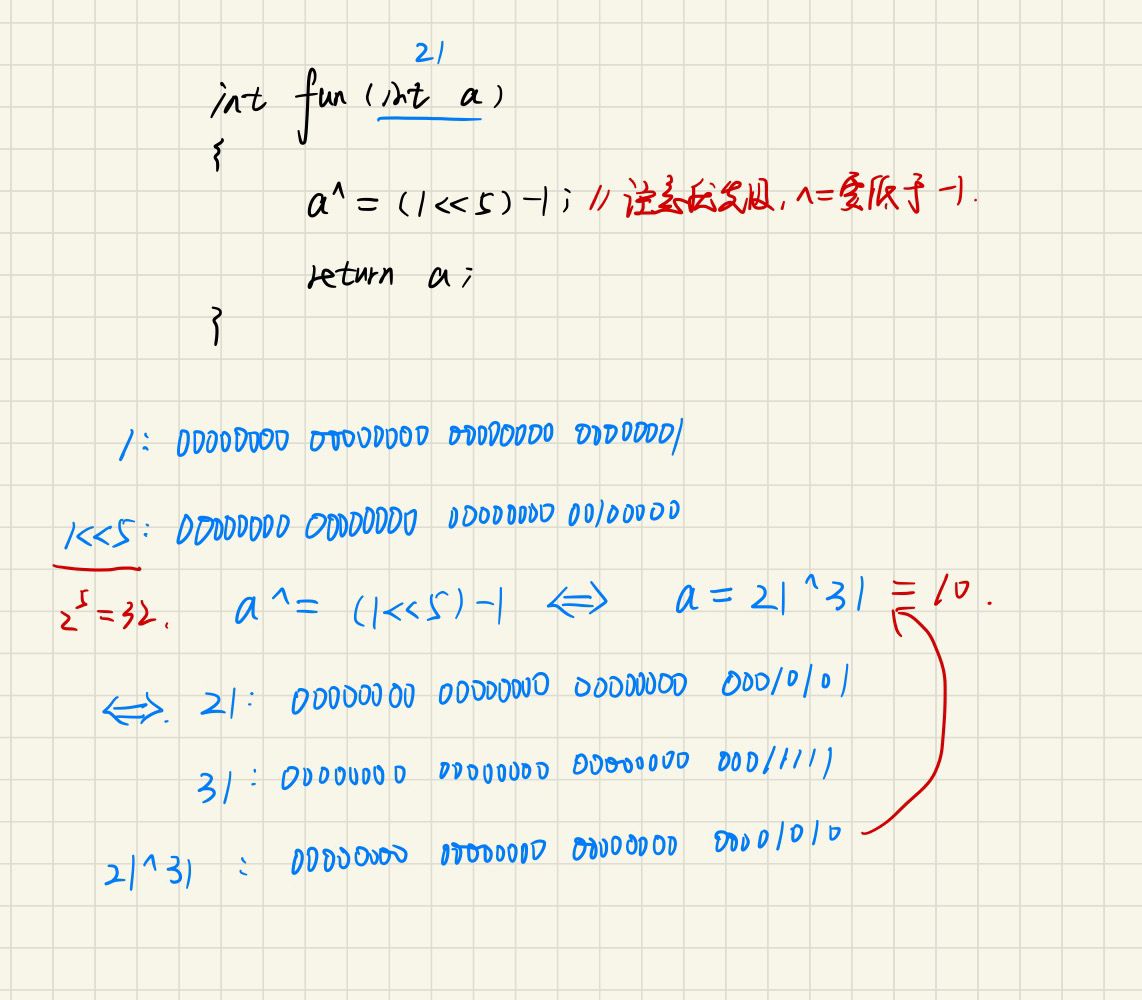 21
int fun (int a)
{
a^= (1<<5)-1; // 注意优先级, ^=要低于 -1.
return a;
}
1: 00000000 00000000 00000000 00000001
1<<5: 00000000 00000000 00000000 00100000
2^5=32. a^= (1<<5)-1 ⟺ a = 21^31 = 10.
⟺. 21: 00000000 00000000 00000000 00010101
31: 00000000 00000000 00000000 00011111
21^31 : 00000000 00000000 00000000 00001010